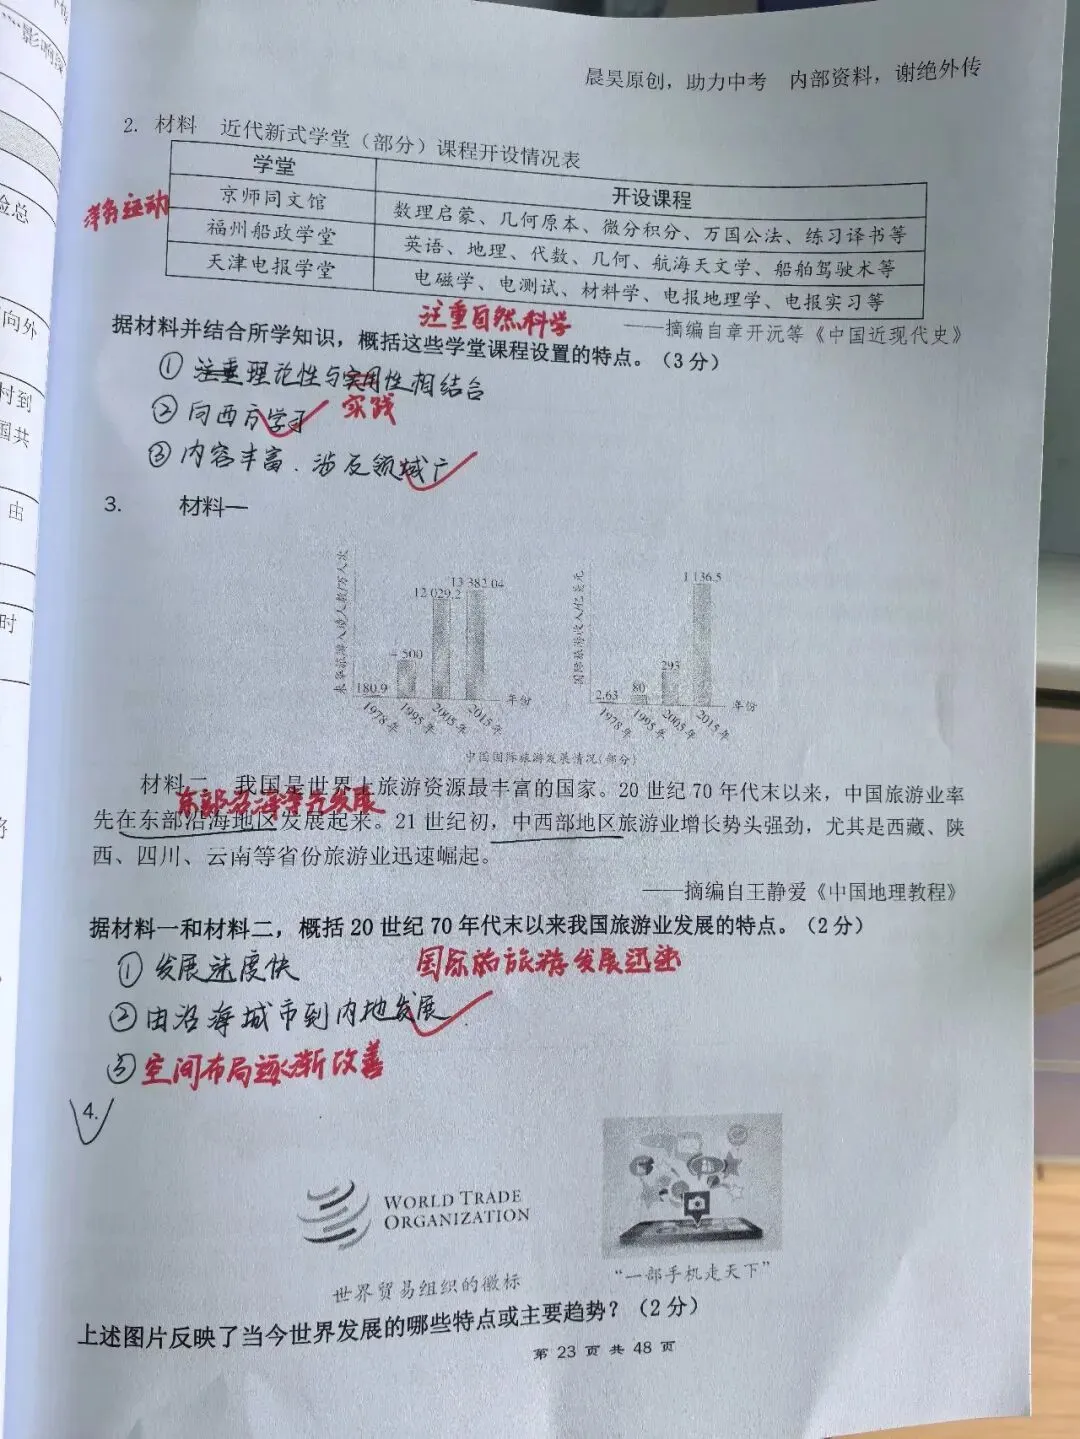 影响深
检总
向外
村到
国共
由
时
晨昊原创，助力中考 内部资料，谢绝外传
2. 材料 近代新式学堂（部分）课程开设情况表
学堂 开设课程
洋务运动
京师同文馆 数理启蒙、几何原本、微分积分、万国公法、练习译书等
福州船政学堂 英语、地理、代数、几何、航海天文学、船舶驾驶术等
天津电报学堂 电磁学、电测试、材料学、电报地理学、电报实习等
注重自然科学
——摘编自章开沅等《中国近现代史》
据材料并结合所学知识，概括这些学堂课程设置的特点。（3分）
① 注重理论性与实用性相结合
实践
② 向西方学习
③ 内容丰富、涉及领域广
3. 材料一
来华旅游入境人数/万人次
180.9
4 500
12 029.2
13 382.04
年份
1978年 1995年 2005年 2015年
国际旅游收入/亿美元
2.63
80
293
1 136.5
年份
1978年 1995年 2005年 2015年
中国国际旅游发展情况（部分）
材料二 我国是世界上旅游资源最丰富的国家。20世纪70年代末以来，中国旅游业率
东部沿海率先发展
先在东部沿海地区发展起来。21世纪初，中西部地区旅游业增长势头强劲，尤其是西藏、陕
西、四川、云南等省份旅游业迅速崛起。
——摘编自王静爱《中国地理教程》
据材料一和材料二，概括20世纪70年代末以来我国旅游业发展的特点。（2分）
① 发展速度快
国际的旅游发展迅速
② 由沿海城市到内地发展
③ 空间布局逐渐改善
4.
WORLD TRADE
ORGANIZATION
世界贸易组织的徽标
“一部手机走天下”
上述图片反映了当今世界发展的哪些特点或主要趋势？（2分）
第 23 页 共 48 页